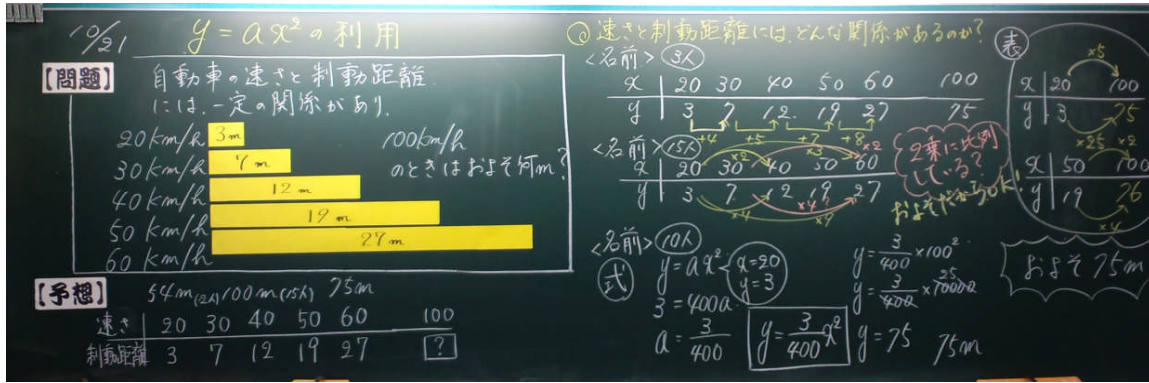 10/21 y=ax²の利用
【問題】
自動車の速さと制動距離
には、一定の関係があり、
20km/h 3m
30km/h 7m
40km/h 12m
50km/h 19m
60km/h 27m
100km/h
のときはおよそ何m?
【予想】
54m(2人) 100m(15人) 75m
速さ 20 30 40 50 60 100
制動距離 3 7 12 19 27 ?
◎速さと制動距離には、どんな関係があるのか?
<名前> 3人
x 20 30 40 50 60 100
y 3 7 12 19 27 75
+4 +5 +7 +8
<名前> 15人
×2 ×3 ×2
x 20 30 40 50 60
y 3 7 12 19 27
×4 ×4 ×9
2乗に比例
している?
およそだからOK!
<名前> 10人
式
y=ax²
x=20
y=3
3=400a
a=3/400
y=3/400x²
y=3/400×100²
y=3/400×10000
25
y=75
75m
表
×5
x 20 100
y 3 75
×25
×2
x 50 100
y 19 76
×4
およそ75m